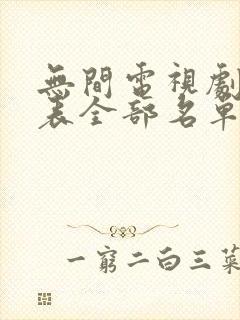 無間電視劇
表全部名單
一窮二白三菜